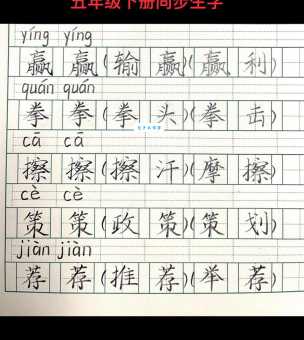 五年级下册同步生字
yíng yíng
赢 赢(输 赢)(赢 利)
quán quán
拳 拳(拳 头)(拳 击)
cā cā
擦 擦(擦 汗)(摩 擦)
cè cè
策 策(政 策)(策 划)
jiàn jiàn
荐 荐(推 荐)(举 荐)